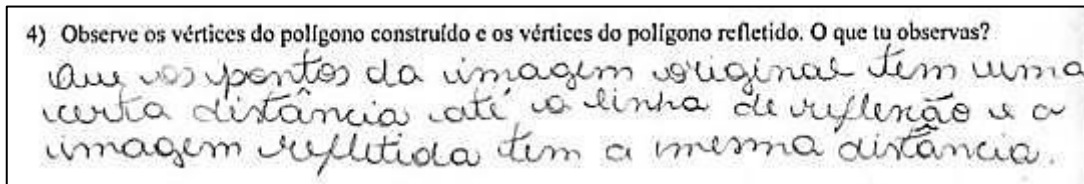 4) Observe os vértices do polígono construído e os vértices do polígono refletido. O que tu observas?
Que os pontos da imagem original tem uma
certa distância até a linha de reflexão e a
imagem refletida tem a mesma distância.